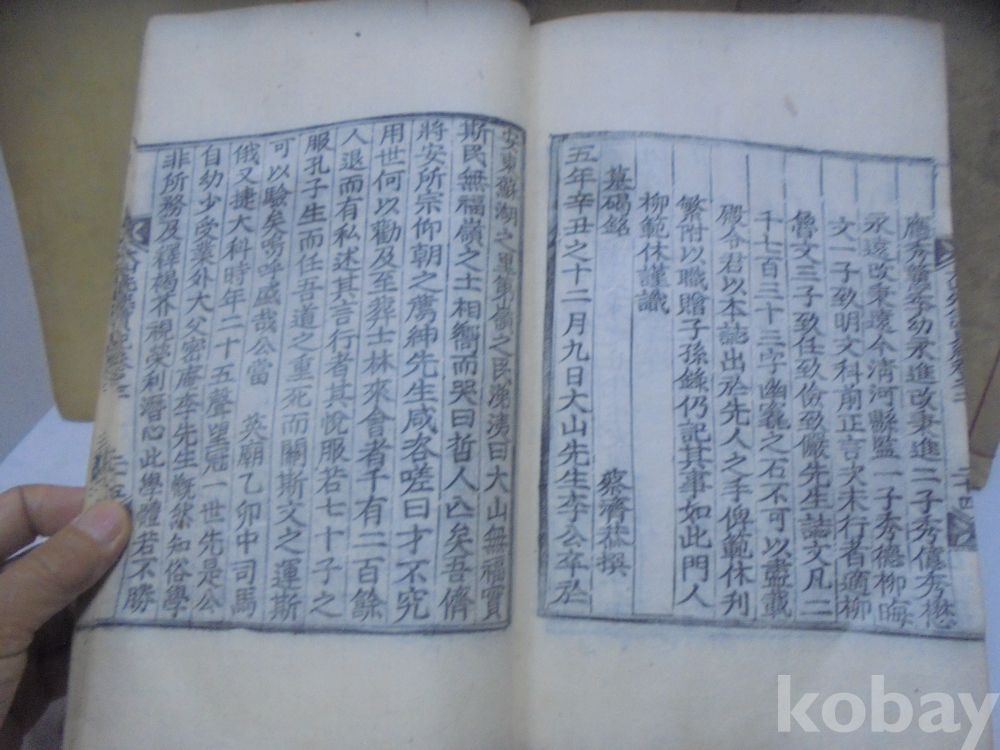 應秀蓂李幼永進改秉進二子秀億秀懋
永遠改秉遠今淸河縣監一子秀德柳晦
文一子致明文科前正言次未行者適柳
魯文三子致任致儉致儼先生誌文凡二
千七百三十三字幽竁之石不可以盡載
殿令君以本誌出於先人之手俾範休刊
繁附以職贈子孫錄仍記其事如此門人
柳範休謹識
墓碣銘
蔡濟恭撰
五年辛丑之十二月九日大山先生李公卒於
安東蘇湖之里第嶺之民洟洟曰大山無福實
斯民無福嶺之士相嚮而哭曰哲人亾矣吾儕
將安所宗仰朝之薦紳先生咸咨嗟曰才不究
用世何以勸及至葬士林來會者千有二百餘
人退而有私述其言行者其悅服若七十子之
服孔子生而任吾道之重死而關斯文之運斯
可以驗矣嗚呼盛哉公當 英廟乙卯中司馬
俄又捷大科時年二十五聲望冠一世先是公
自幼少受業外大父密庵李先生慨然知俗學
非所務及釋褐芥視榮利潛心此學體若不勝
kobay